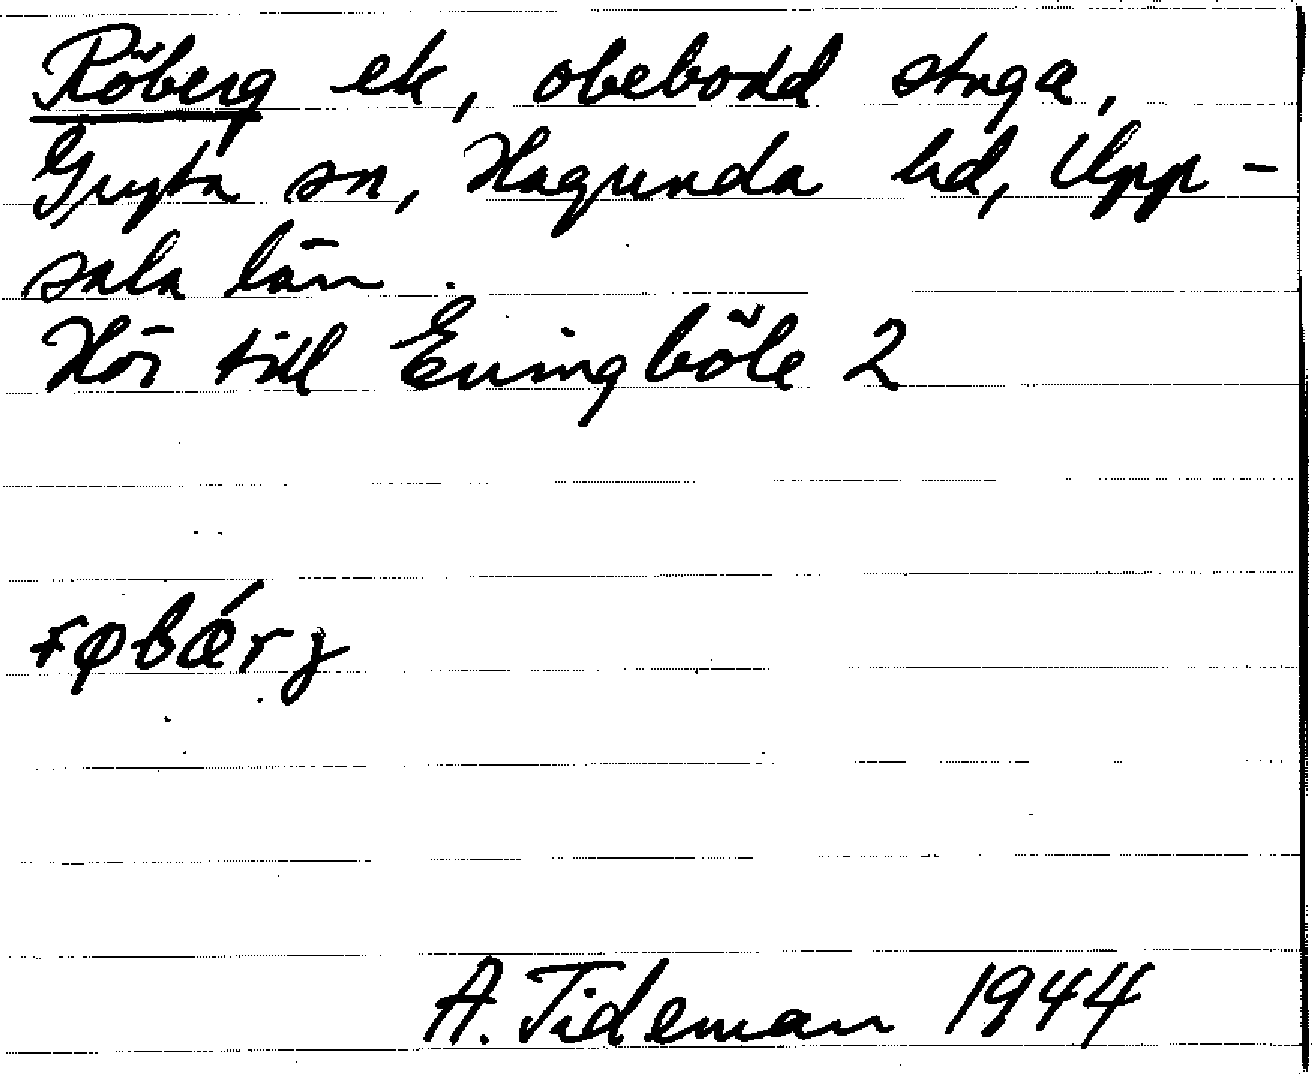 Röberg ek, obebodd stuga,
Gryta sn, Hagunda hd, Upp-
sala län.
Hör till Eningböle 2
røbǽrg
A. Tideman 1944